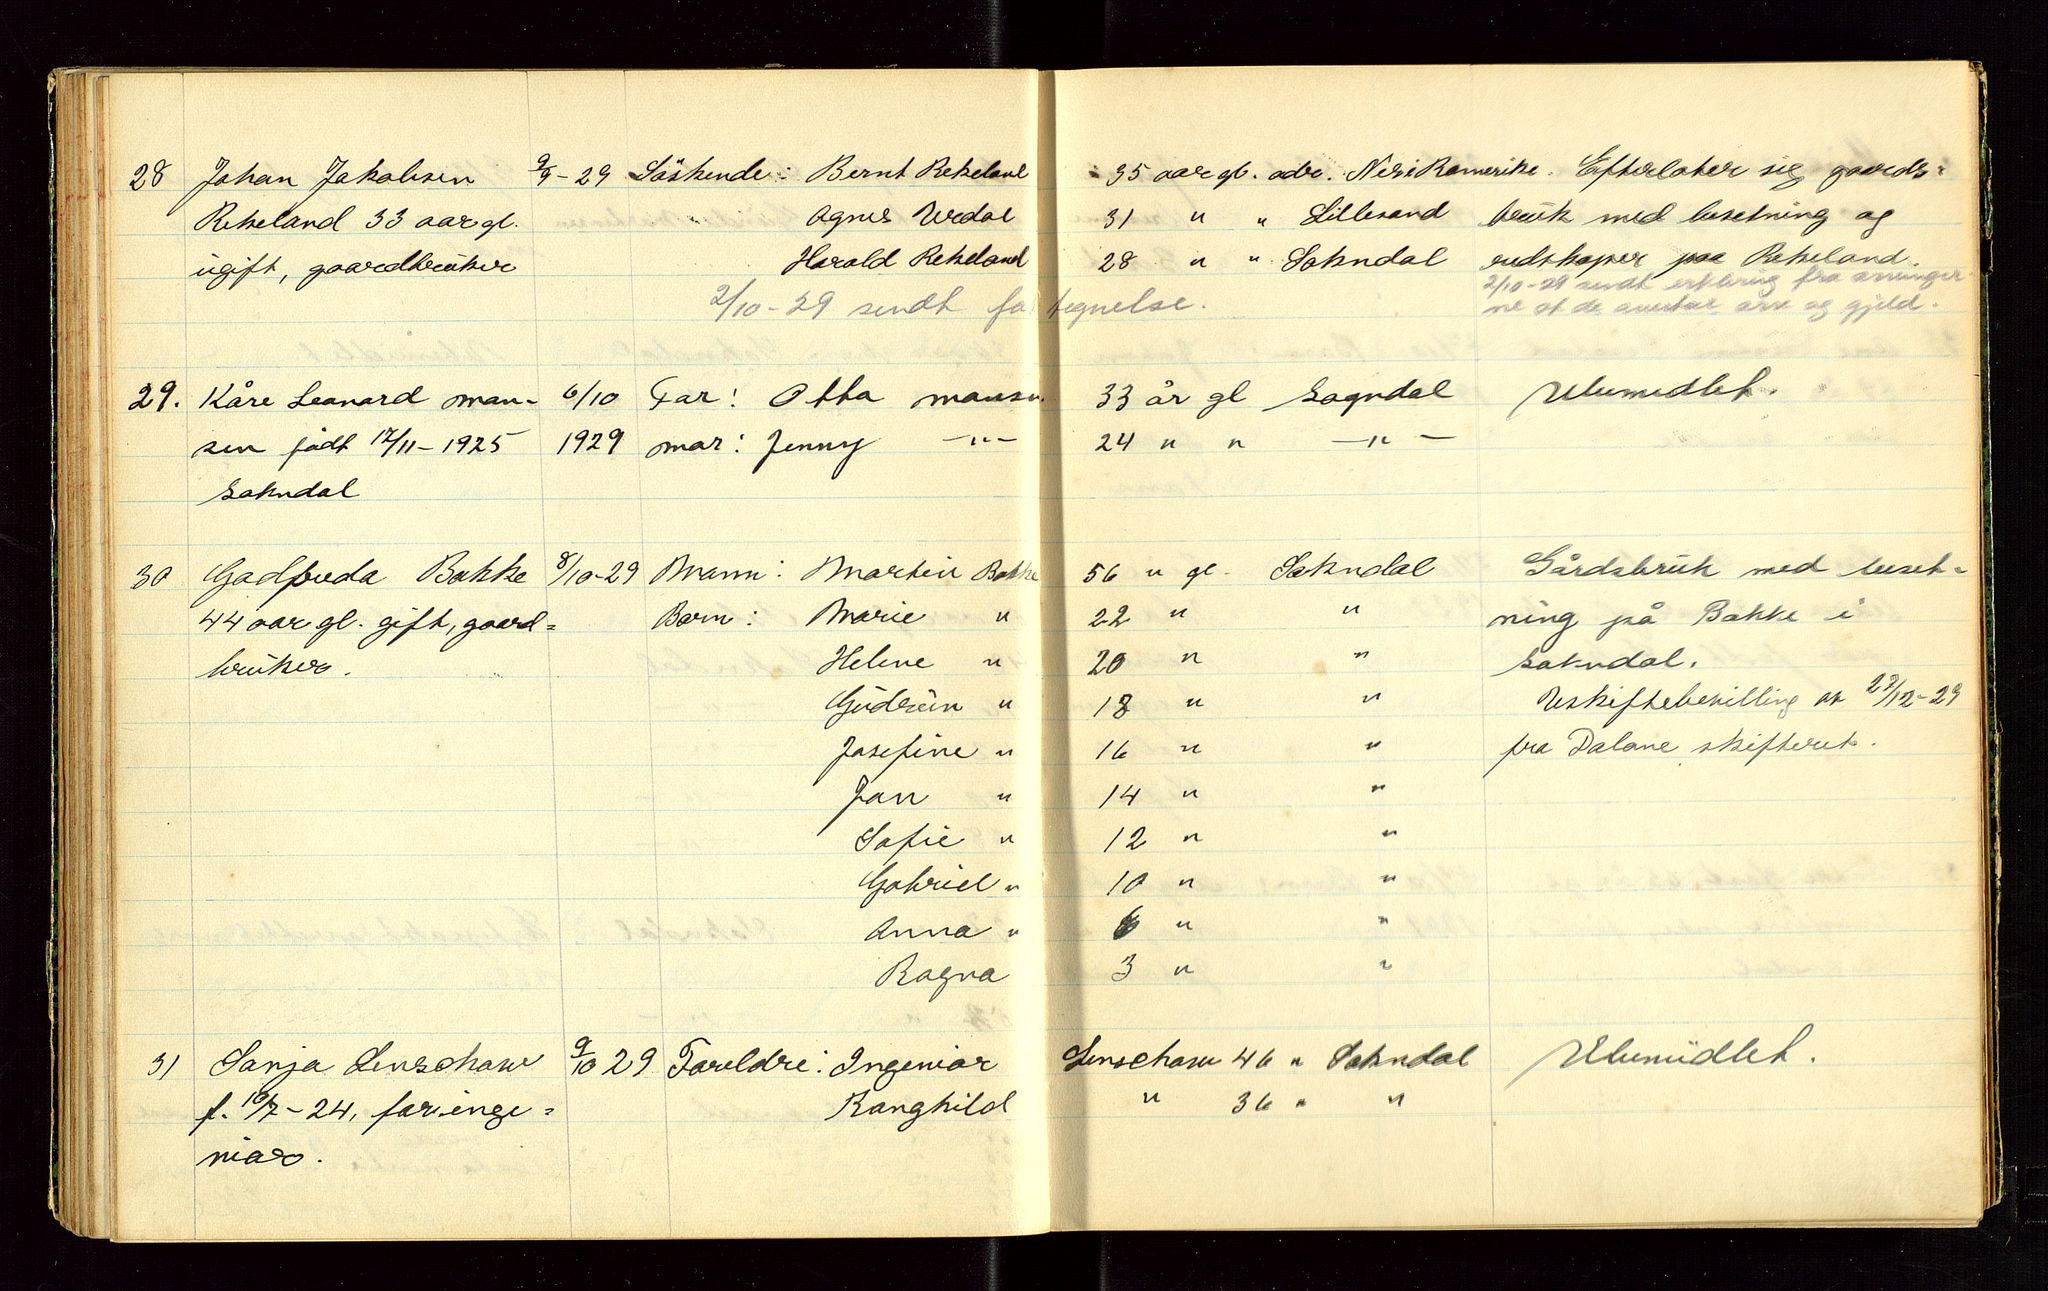 28 Johan Jakobsen 9/9-29 Söskende: Bernt Rekeland 35 aar gl. adr. Nesi Romerike. Efterlater sig gaards-
Rekeland 33 aar gl. Agnes Verdal 31 " " Lillesand bruk med besetning og
ugift, gaardbruker Harald Rekeland 28 " " Sokndal redskaper paa Rekeland.
2/10-29 sendt fortegnelse. 2/10-29 sendt erklæring fra arvinger
ne at de overtar arv og gjeld.
29. Kåre Leonard Mon- 6/10 Far: Otto Monsen 33 år gl Sogndal Ubemidlet.
sen födt 12/11-1925 1929 Mor: Jenny -"- 24 " " -"-
Sokndal
30 Gadfreda Bakke 8/10-29 Mann: Martin Bakke 56 " gl. Sokndal Gårdsbruk med beset-
44 aar gl. gift, gaard= Barn: Marie " 22 " " ning på Bakke i
bruker. Helene " 20 " " Sokndal.
Gudrun " 18 " " Uskiftebevilling av /12-29
Josefine " 16 " " fra Dalane skifteret.
Jon " 14 " "
Sofie " 12 " "
Gabriel " 10 " "
Anna " 6 " "
Ragna 3 " "
31 Sonja Lenschow 9/10 29 Foreldre: Ingeniör Lenschow 46 " Sokndal Ubemidlet.
f. 10/7-24, far inge= Ranghild " 36 " "
niör.